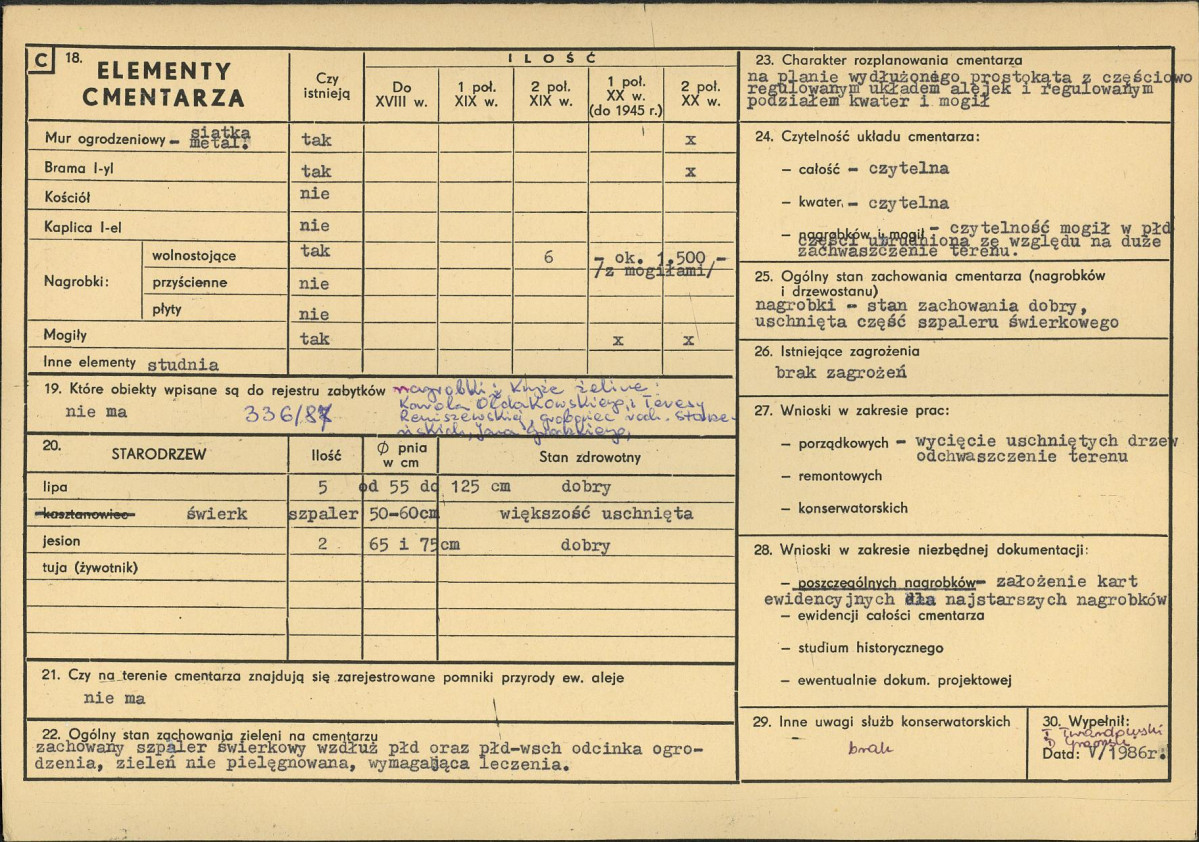 C 18. ELEMENTY CMENTARZA
Czy istnieją
ILOŚĆ
Do XVIII w.
1 poł. XIX w.
2 poł. XIX w.
1 poł. XX w. (do 1945 r.)
2 poł. XX w.
Mur ogrodzeniowy – siatka metal. tak x
Brama I-yl tak x
Kościół nie
Kaplica I-el nie
Nagrobki:
wolnostojące tak 6 – ok. 1.500 –
/z mogiłami/
przyścienne nie
płyty nie
Mogiły tak x x
Inne elementy studnia
19. Które obiekty wpisane są do rejestru zabytków
nie ma 336/87
nagrobki: Krzyże żeliwne:
Karola Ołdakowskiego i Teresy
Remiszewskiej, grobowiec rodz.
Jana
20. STARODRZEW Ilość Ø pnia w cm Stan zdrowotny
lipa 5 od 55 do 125 cm dobry
kasztanowiec świerk szpaler 50-60cm większość uschnięta
jesion 2 65 i 75cm dobry
tuja (żywotnik)
21. Czy na terenie cmentarza znajdują się zarejestrowane pomniki przyrody ew. aleje
nie ma
22. Ogólny stan zachowania zieleni na cmentarzu
zachowany szpaler świerkowy wzdłuż płd oraz płd-wsch odcinka ogro-
dzenia, zieleń nie pielęgnowana, wymagająca leczenia.
23. Charakter rozplanowania cmentarza
na planie wydłużonego prostokąta z częściowo
regulowanym układem alejek i regulowanym
podziałem kwater i mogił
24. Czytelność układu cmentarza:
– całość – czytelna
– kwater, – czytelna
– nagrobków i mogił – czytelność mogił w płd
części utrudniona ze względu na duże
zachwaszczenie terenu.
25. Ogólny stan zachowania cmentarza (nagrobków
i drzewostanu)
nagrobki – stan zachowania dobry,
uschnięta część szpaleru świerkowego
26. Istniejące zagrożenia
brak zagrożeń
27. Wnioski w zakresie prac:
– porządkowych – wycięcie uschniętych drzew
odchwaszczenie terenu
– remontowych
– konserwatorskich
28. Wnioski w zakresie niezbędnej dokumentacji:
– poszczególnych nagrobków – założenie kart
ewidencyjnych dla najstarszych nagrobków
– ewidencji całości cmentarza
– studium historycznego
– ewentualnie dokum. projektowej
29. Inne uwagi służb konserwatorskich
brak
30. Wypełnił:
Data: V/1986r.